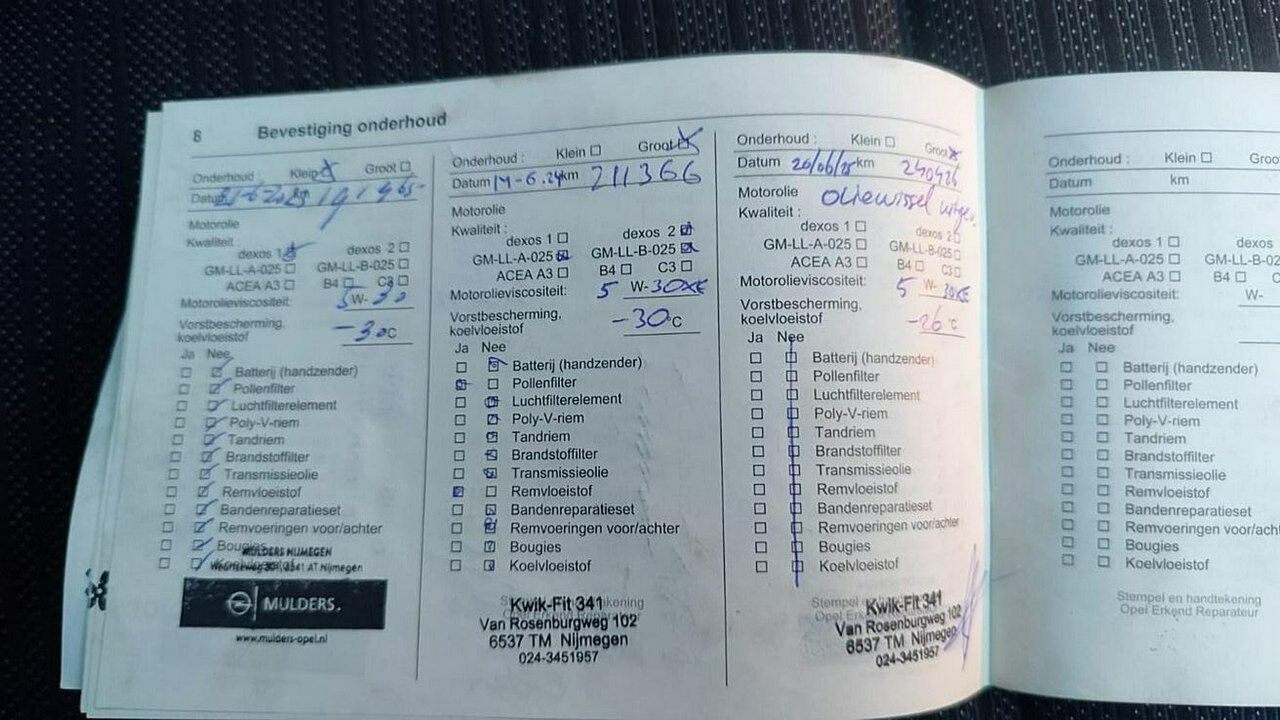 8 Bevestiging onderhoud
Onderhoud : Klein Groot
Datum km
Motorolie
Kwaliteit :
dexos 1 dexos 2
GM-LL-A-025 GM-LL-B-025
ACEA A3 B4 C3
Motorolieviscositeit: 5 W-30
Vorstbescherming,
koelvloeistof -30°C
Ja Nee
Batterij (handzender)
Pollenfilter
Luchtfilterelement
Poly-V-riem
Tandriem
Brandstoffilter
Transmissieolie
Remvloeistof
Bandenreparatieset
Remvoeringen voor/achter
Bougies
MULDERS NIJMEGEN
6541 AT Nijmegen
MULDERS.
www.mulders-opel.nl
Onderhoud : Klein Groot
Datum 14-6-24 km 211366
Motorolie
Kwaliteit :
dexos 1 dexos 2
GM-LL-A-025 GM-LL-B-025
ACEA A3 B4 C3
Motorolieviscositeit: 5 W-30
Vorstbescherming,
koelvloeistof -30°C
Ja Nee
Batterij (handzender)
Pollenfilter
Luchtfilterelement
Poly-V-riem
Tandriem
Brandstoffilter
Transmissieolie
Remvloeistof
Bandenreparatieset
Remvoeringen voor/achter
Bougies
Koelvloeistof
Kwik-Fit 341
Van Rosenburgweg 102
6537 TM Nijmegen
024-3451957
Onderhoud : Klein Groot
Datum 20/06/25 km 240426
Motorolie oliewissel
Kwaliteit :
dexos 1 dexos 2
GM-LL-A-025 GM-LL-B-025
ACEA A3 B4 C3
Motorolieviscositeit: 5 W-30
Vorstbescherming,
koelvloeistof -26°C
Ja Nee
Batterij (handzender)
Pollenfilter
Luchtfilterelement
Poly-V-riem
Tandriem
Brandstoffilter
Transmissieolie
Remvloeistof
Bandenreparatieset
Remvoeringen voor/achter
Bougies
Koelvloeistof
Stempel en
Kwik-Fit 341
Van Rosenburgweg 102
6537 TM Nijmegen
024-3451957
Onderhoud : Klein Groo
Datum km
Motorolie
Kwaliteit :
dexos 1 dexos
GM-LL-A-025 GM-LL-B-02
ACEA A3 B4 C
Motorolieviscositeit: W-
Vorstbescherming,
koelvloeistof
Ja Nee
Batterij (handzender)
Pollenfilter
Luchtfilterelement
Poly-V-riem
Tandriem
Brandstoffilter
Transmissieolie
Remvloeistof
Bandenreparatieset
Remvoeringen voor/acht
Bougies
Koelvloeistof
Stempel en handtekening
Opel Erkend Reparateur